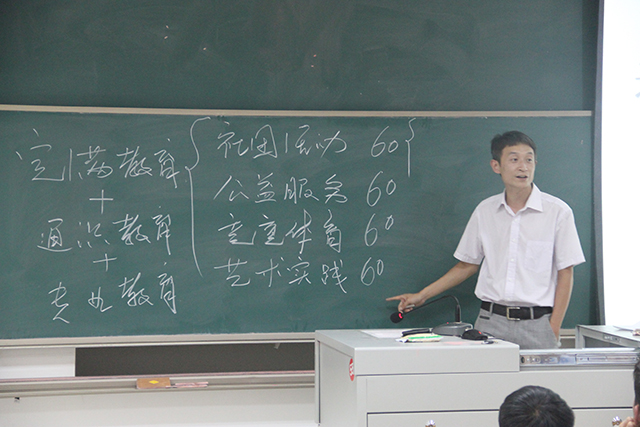 完满教育
+
通识教育
+
专业教育
社团活动 60
公益服务 60
体育 60
艺术实践 60